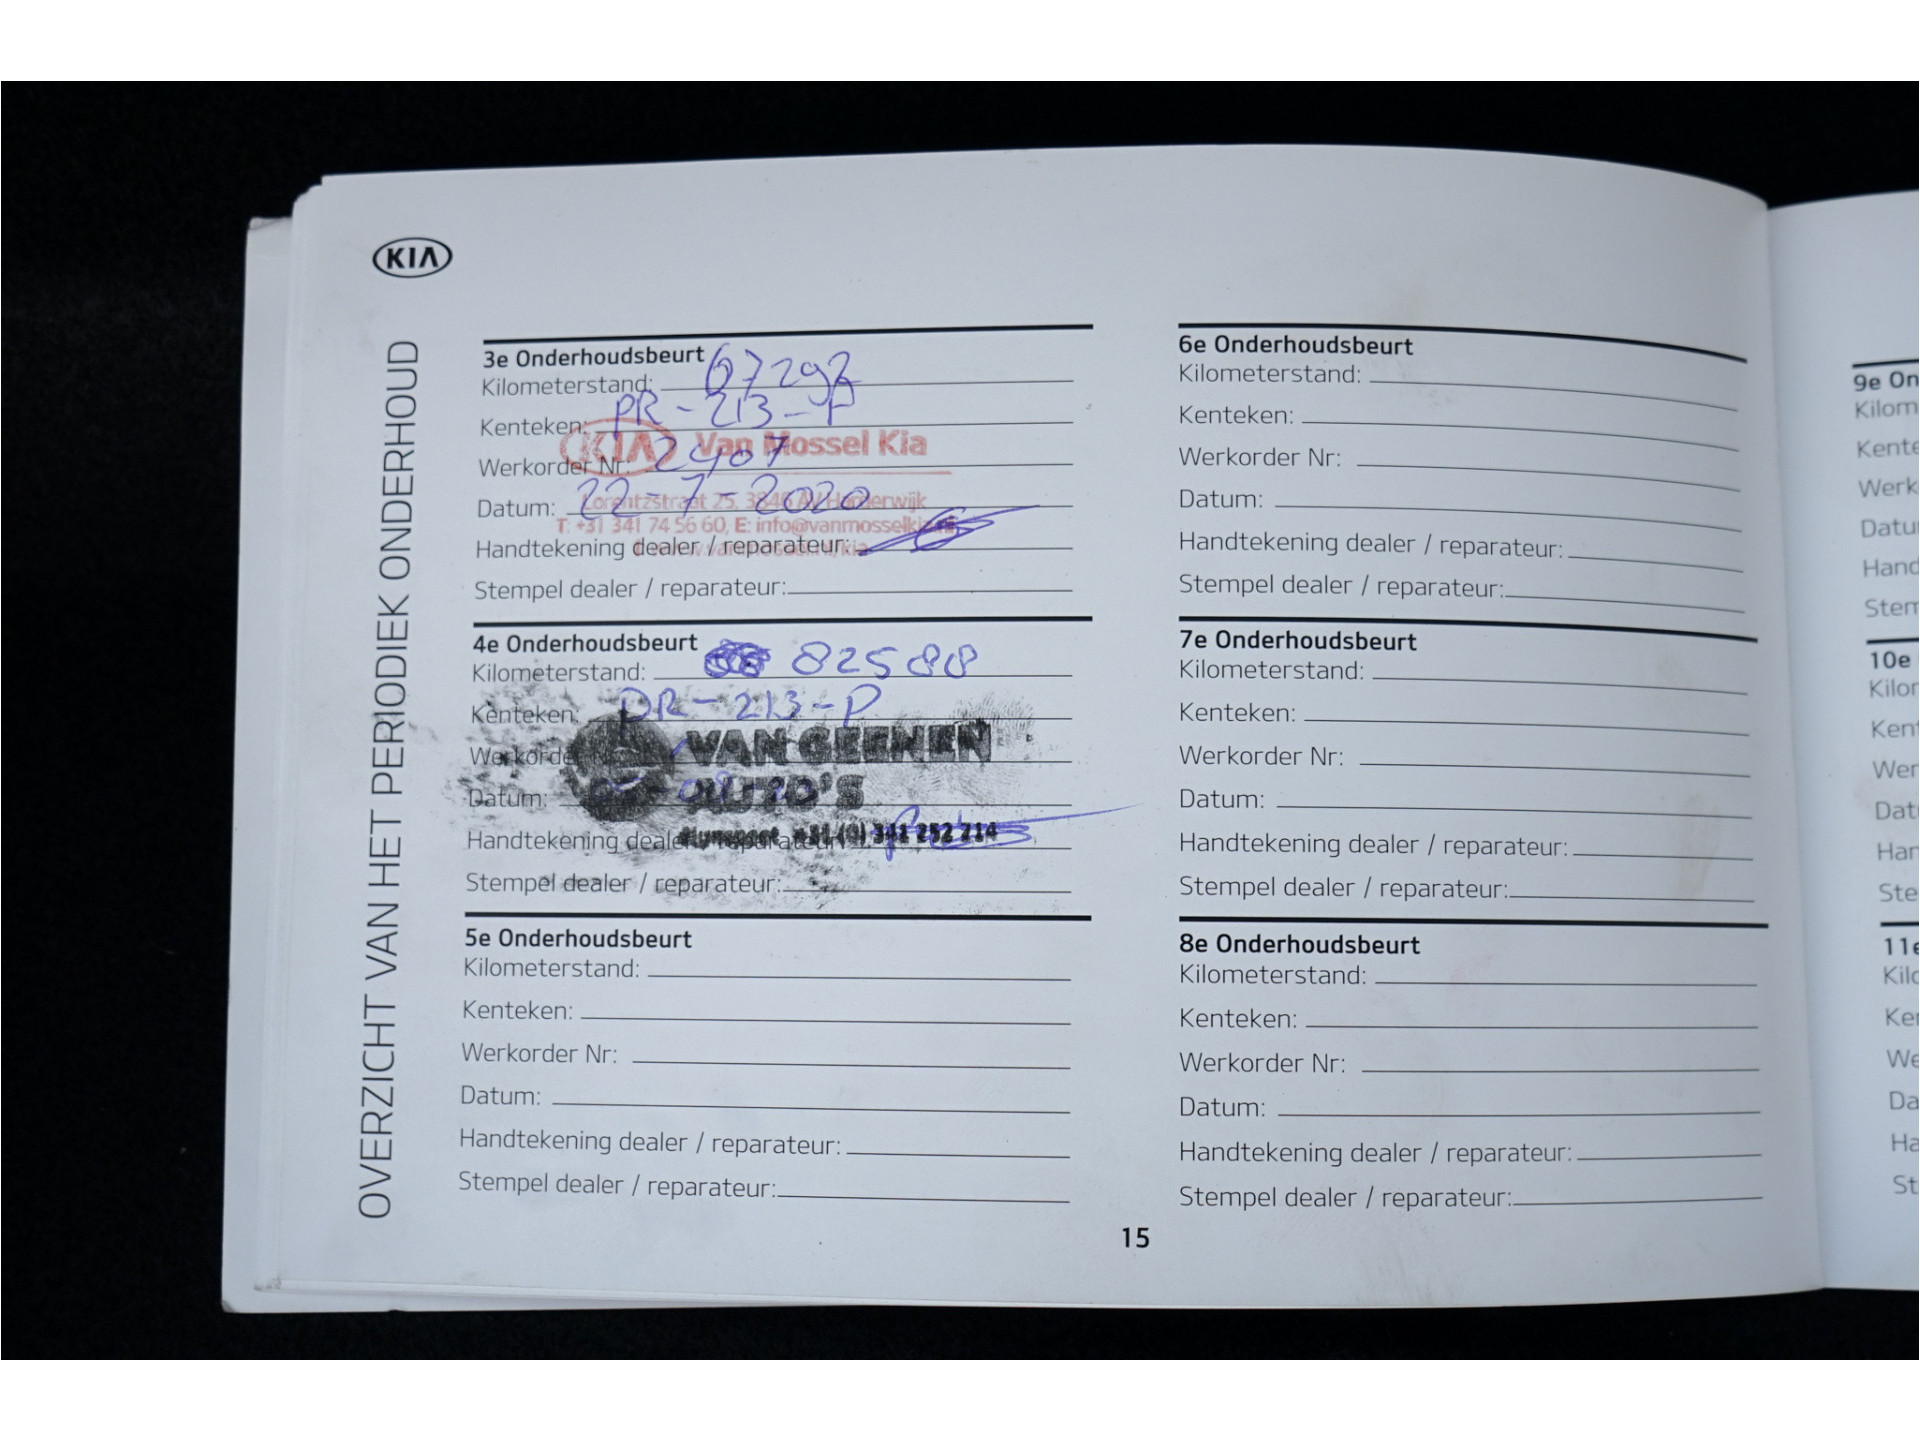 KIA
OVERZICHT VAN HET PERIODIEK ONDERHOUD
3e Onderhoudsbeurt
Kilometerstand: 67292
Kenteken: PR-213-P
KIA Van Mossel Kia
Werkorder Nr: 2407
Lorentzstraat 25, 3846 AV Harderwijk
Datum: 22-7-2020
T: +31 341 74 56 60, E: info@vanmosselkia.nl
Handtekening dealer / reparateur:
Stempel dealer / reparateur:
4e Onderhoudsbeurt
Kilometerstand: 82588
Kenteken: PR-213-P
VAN GEENEN
Werkorder Nr:
AUTO'S
Datum:
+31 (0) 341 252 714
Handtekening dealer / reparateur:
Stempel dealer / reparateur:
5e Onderhoudsbeurt
Kilometerstand:
Kenteken:
Werkorder Nr:
Datum:
Handtekening dealer / reparateur:
Stempel dealer / reparateur:
6e Onderhoudsbeurt
Kilometerstand:
Kenteken:
Werkorder Nr:
Datum:
Handtekening dealer / reparateur:
Stempel dealer / reparateur:
7e Onderhoudsbeurt
Kilometerstand:
Kenteken:
Werkorder Nr:
Datum:
Handtekening dealer / reparateur:
Stempel dealer / reparateur:
8e Onderhoudsbeurt
Kilometerstand:
Kenteken:
Werkorder Nr:
Datum:
Handtekening dealer / reparateur:
Stempel dealer / reparateur:
15
9e On
Kilom
Kente
Werk
Datu
Hand
Stem
10e
Kilor
Kent
Wer
Dat
Har
Ste
11e
Kilo
Ker
We
Da
Ha
St